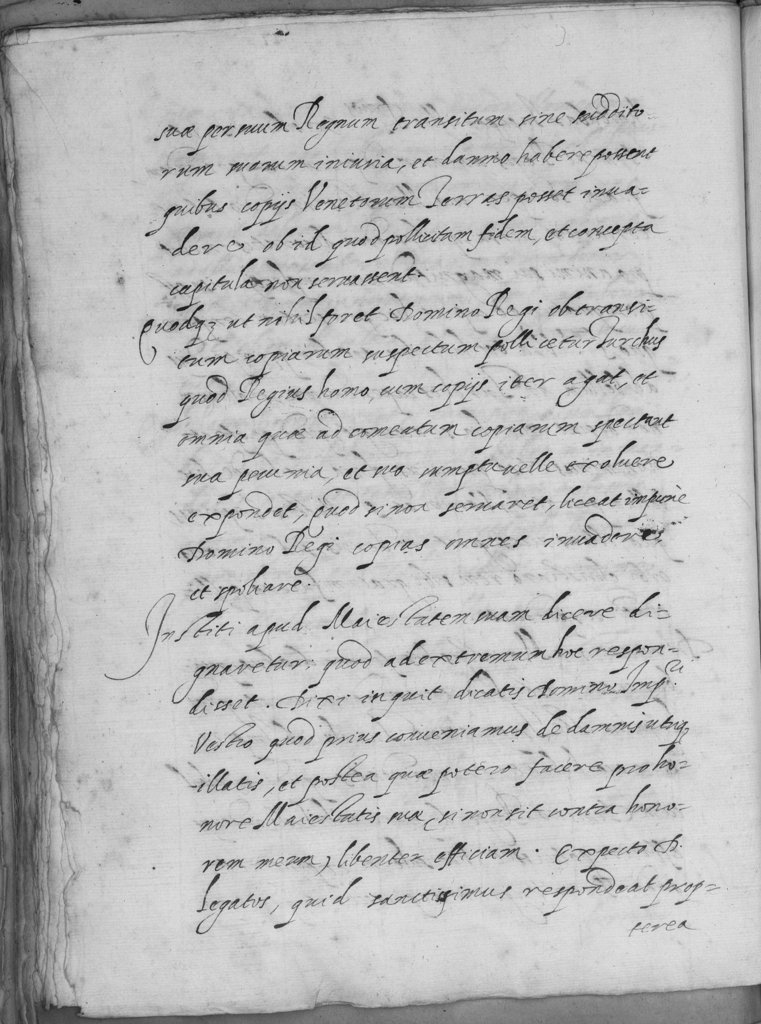 suæ per suum Regnum transitum sine suddito-
rum suorum iniuria, et damno habere possent
quibus copijs Venetorum Terras posset inua-
dere ob id quod pollicitam fidem, et concepta
capitula non seruassent
Quodq; ut nihil foret Domino Regi ob transi-
tum copiarum suspectum pollicetur Turchus
quod Regius homo cum copijs iter agat, et
omnia quæ ad comeatum copiarum spectant
sua pecunia, et suo sumptu uelle exoluere
expondet, quod si non seruaret, liceat impune
Domino Regi copias omnes inuadere,
et spoliare.
Institi apud Maiestatem suam dicere di-
gnaretur: quod ad extremum hoc respon-
disset. Dixi inquit dicatis Domino Imp.ri
Vestro quod prius conueniamus de damnis utrinq;
illatis, et postea quæ potero facere pro ho-
nore Maiestatis suæ (si non sit contra hono-
rem meum) libenter efficiam. Expecto D.
legatos, quid sanctissimus respondeat prop-
terea